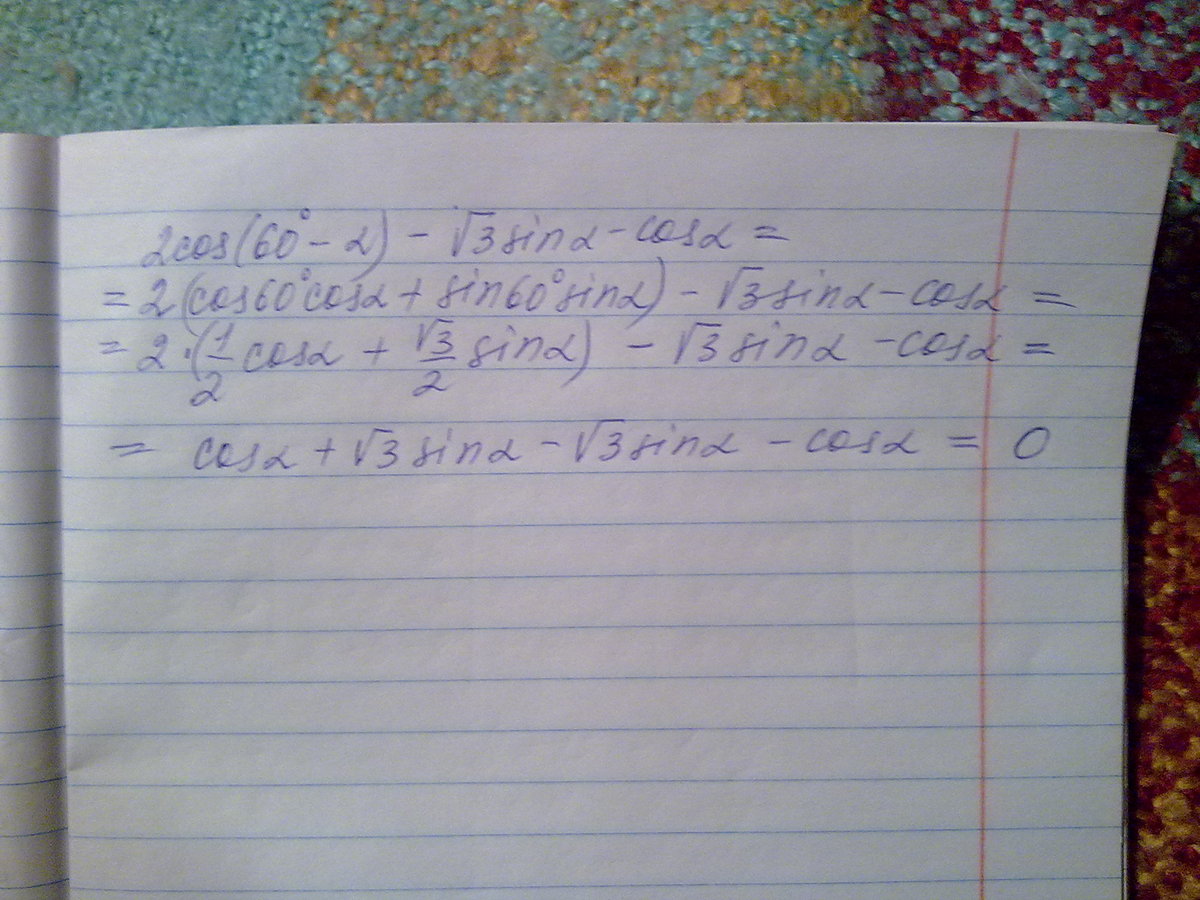 2cos(60° - α) - √3 sinα - cosα =
= 2(cos60°cosα + sin60°sinα) - √3 sinα - cosα =
= 2·(1/2 cosα + √3/2 sinα) - √3 sinα - cosα =
= cosα + √3 sinα - √3 sinα - cosα = 0